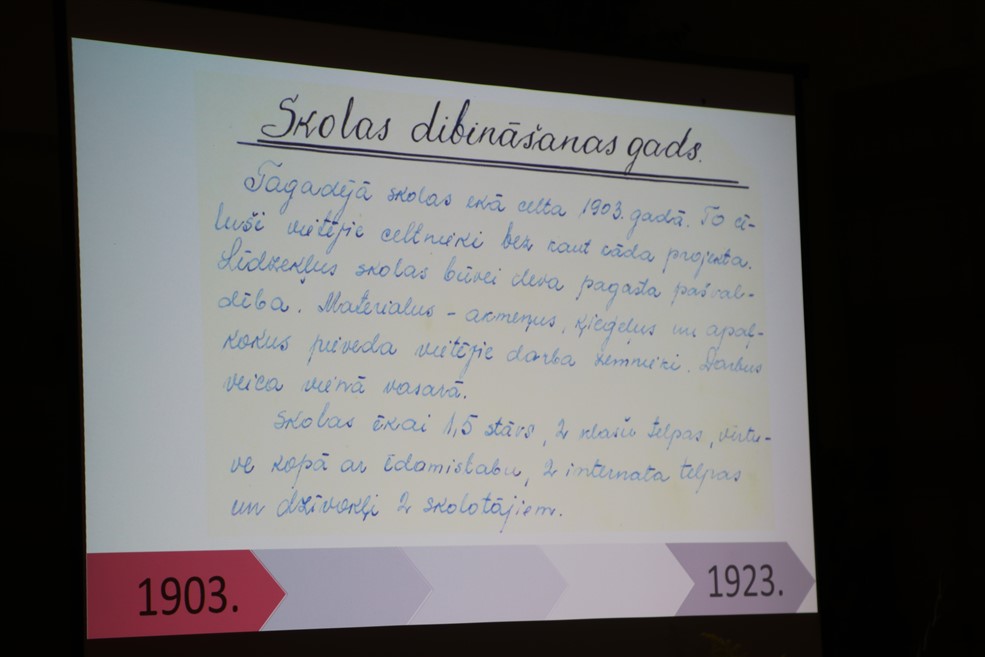 Skolas dibināšanas gads.
Tagadējā skolas ēkā celta 1903. gadā. To cē-
luši vietējie celtnieki bez kaut kāda projekta.
Līdzekļus skolas būvei deva pagasta pašval-
dība. Materialus - akmeņus, ķieģeļus un apaļ-
kokus pieveda vietējie darba zemnieki. Darbus
veica vienā vasarā.
Skolas ēkai 1,5 stāvs, 2 klašu telpas, virtu-
ve kopā ar ēdamistabu, 2 internata telpas
un dzīvokļi 2 skolotājiem.
1903.
1923.